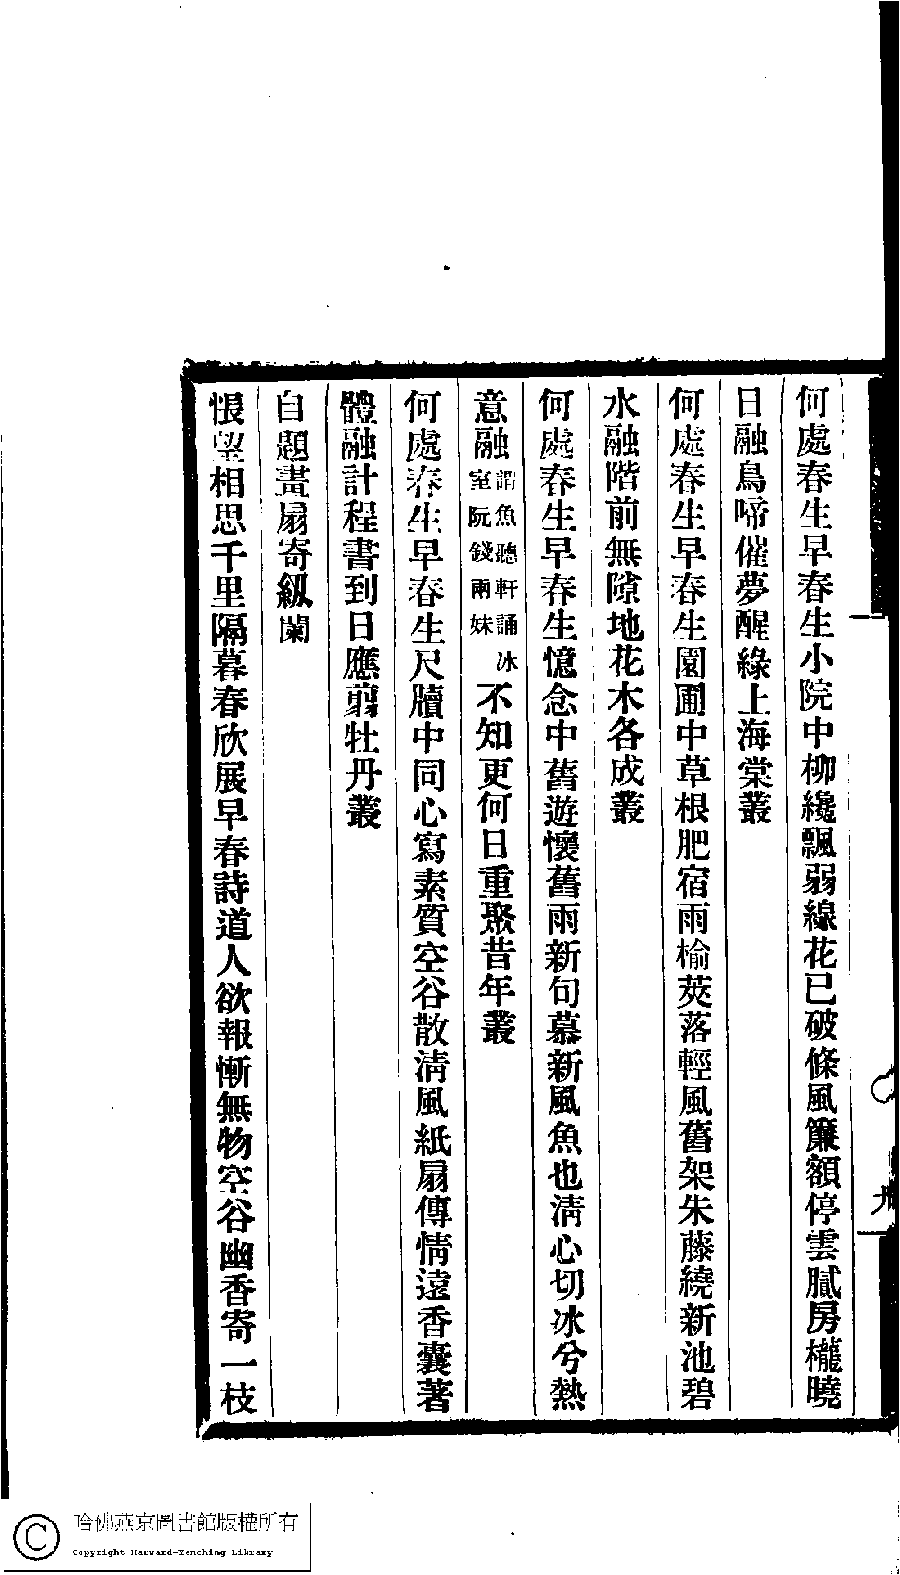 何處春生早春生小院中柳纔飄弱線花已破條風簾額停雲膩房櫳曉
日融鳥啼催夢醒綠上海棠叢
何處春生早春生園圃中草根肥宿雨榆莢落輕風舊架朱藤繞新池碧
水融階前無隙地花木各成叢
何處春生早春生憶念中舊遊懷舊雨新句慕新風魚也淸心切冰兮熱
意融謂魚聽軒誦冰室阮錢兩妹不知更何日重聚昔年叢
何處春生早春生尺牘中同心寫素質空谷散淸風紙扇傳情遠香囊著
體融計程書到日應剪牡丹叢
自題畫扇寄紉蘭
悵望相思千里隔暮春欣展早春詩道人欲報慚無物空谷幽香寄一枝
哈佛燕京圖書館版權所有
Copyright Harvard-Yenching Library